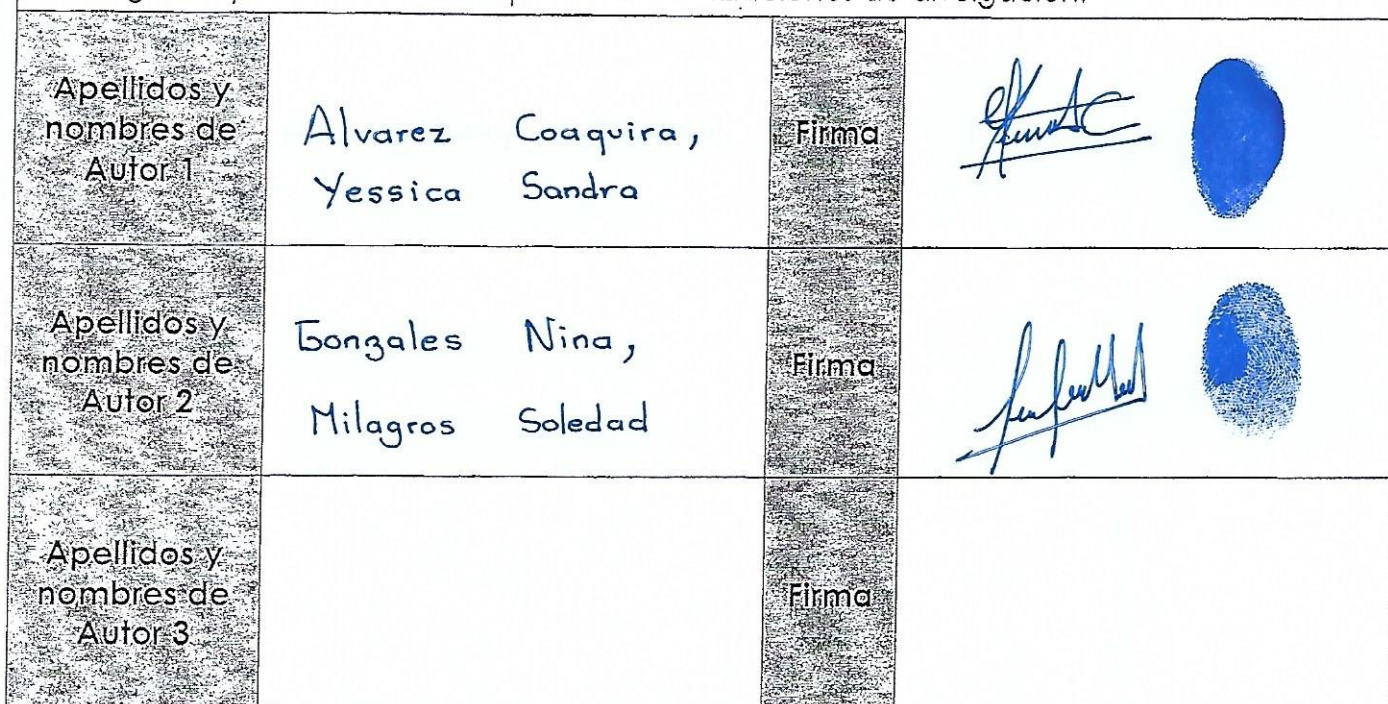 Apellidos y
nombres de
Autor 1
Alvarez Coaquira,
Yessica Sandra
Firma
Apellidos y
nombres de
Autor 2
Gonzales Nina,
Milagros Soledad
Firma
Apellidos y
nombres de
Autor 3
Firma